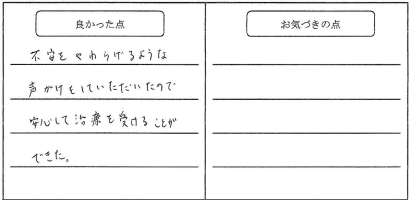 良かった点
お気づきの点
不安をやわらげるような
声がけをしていただいたので
安心して治療を受けることが
できた。